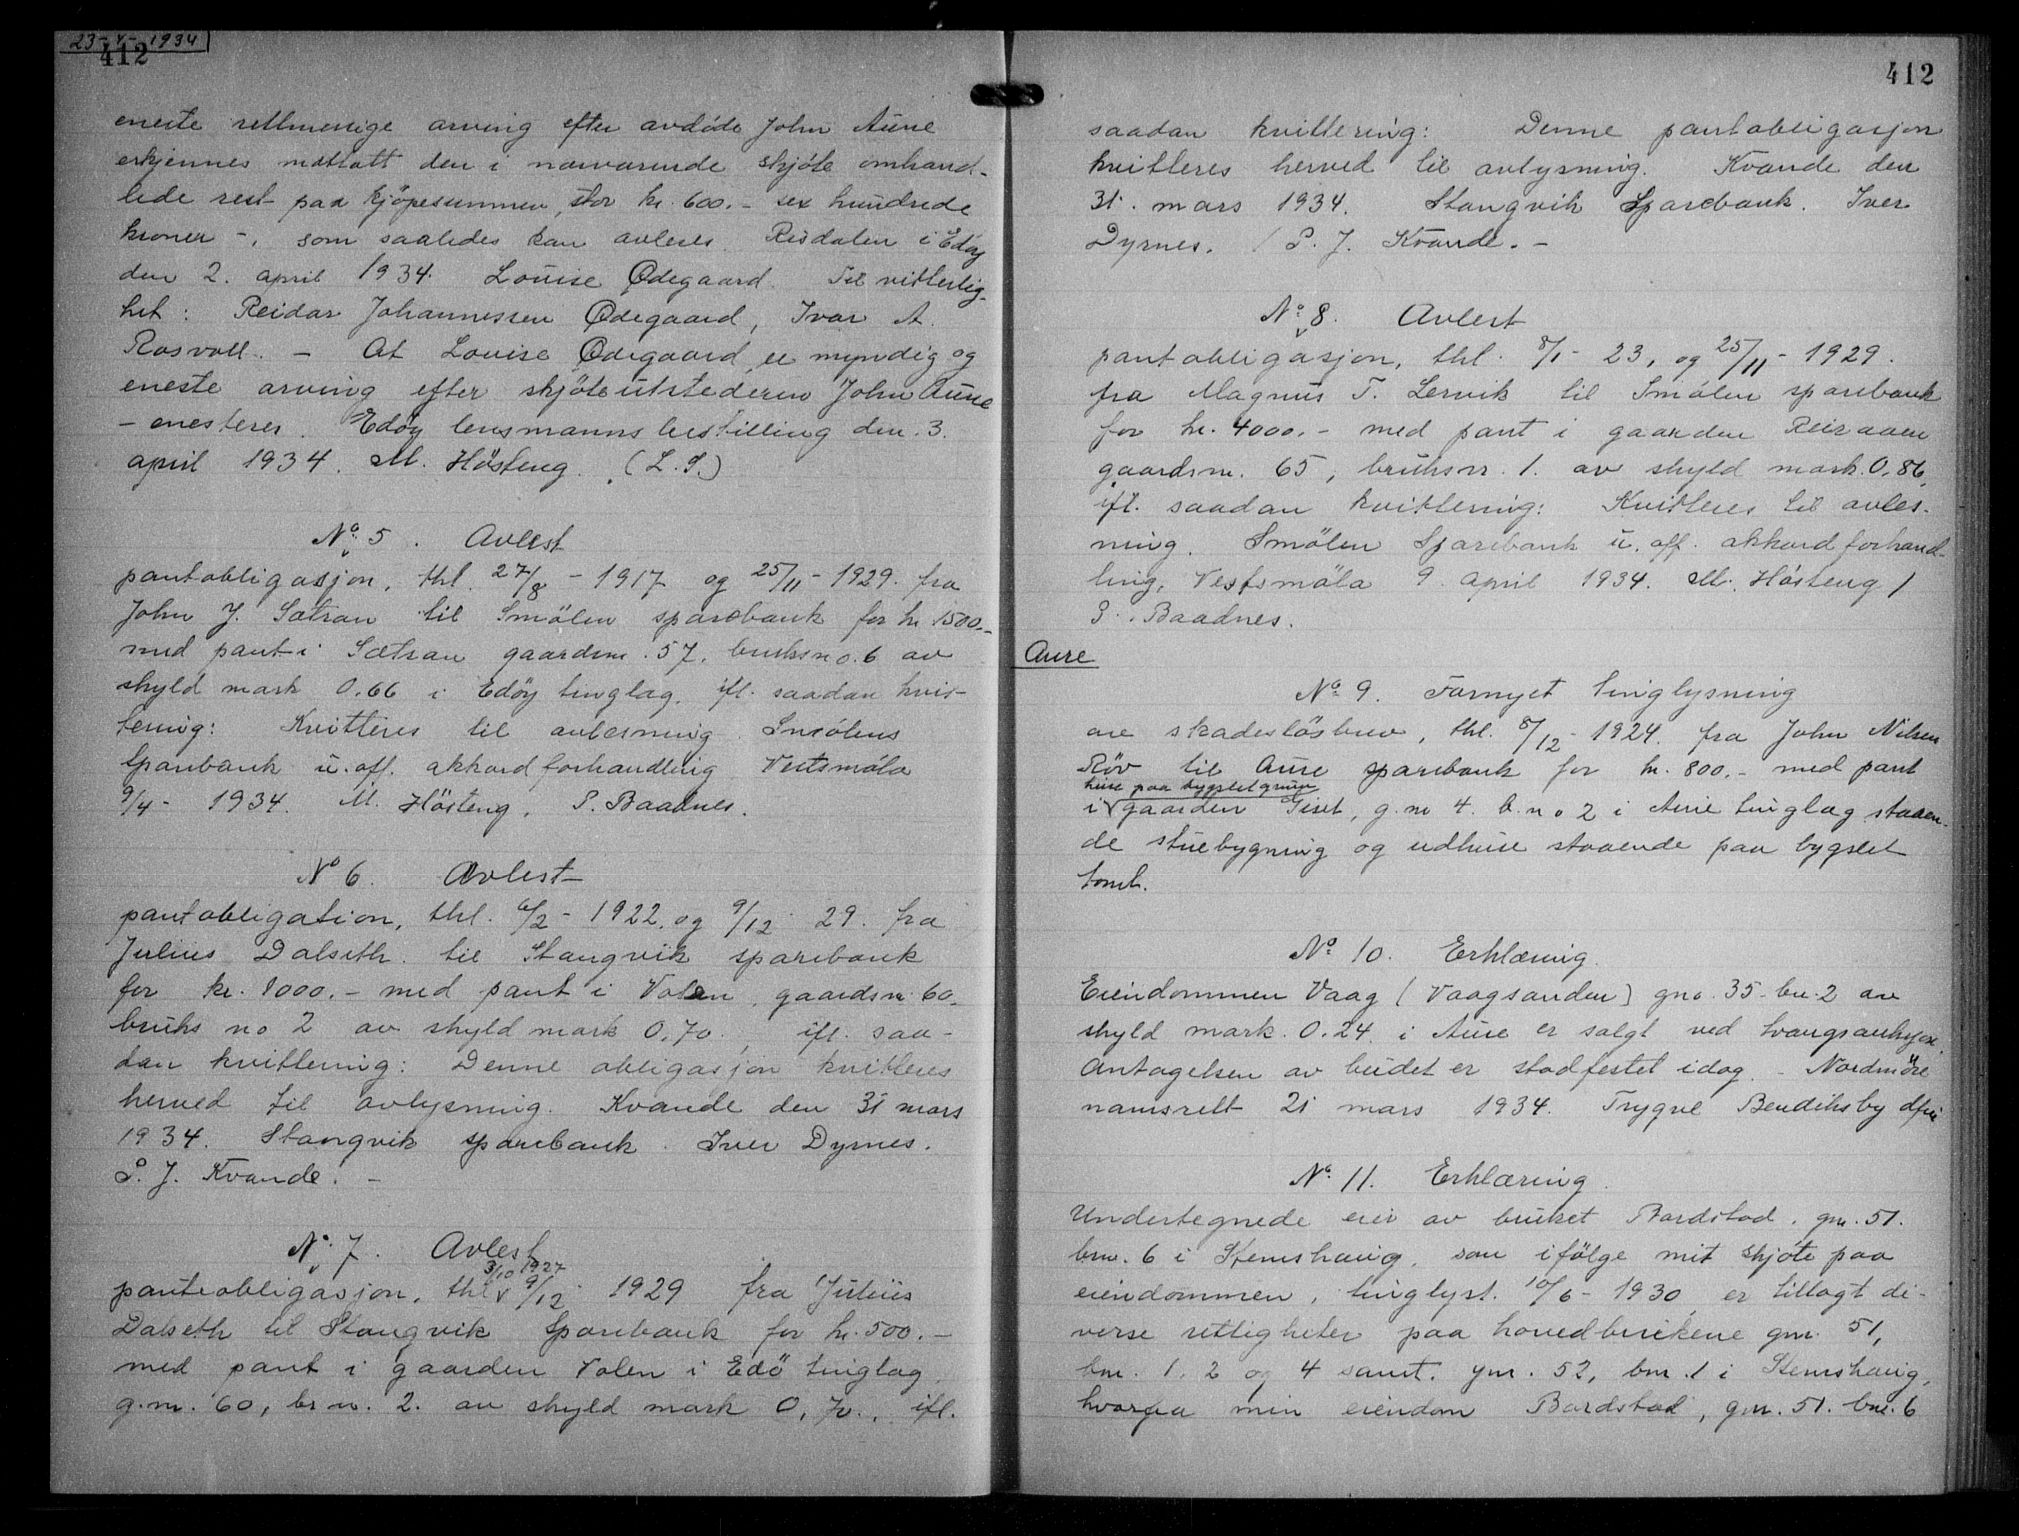 23-4-1934
412
eneste rettmessige arving efter avdöde John Aune
erkjennes mottatt den i nærværende skjöte omhand-
lede rest paa kjöpesummen, stor kr. 600.- sex hundrede
kroner -, som saaledes kan avleses. Risdalen i Edöy
den 2. april 1934. Louise Ødegaard. Til vitterlig-
het: Reidar Johannessen Ødegaard, Ivar A.
Rosvoll. - At Louise Ødegaard er myndig og
eneste arving efter skjöteutstederen John Aune
- attesteres. Edöy lensmannsbestilling den 3.
april 1934. M. Hösteng. (L.S.)
No 5. Avlest
pantobligasjon, thl. 27/8 - 1917 og 25/11 - 1929. fra
John J. Sætran til Smölen sparebank for kr. 1500.-
med pant i Sætran gaardsnr. 57. bruksno. 6 av
skyld mark 0.66 i Edöy tinglag, ifl. saadan kvit-
tering: Kvitteres til avlesning. Smölens
Sparebank u. off. akkordforhandling Vestsmöla
9/4 - 1934. M. Hösteng. P. Baadnes.
No 6. Avlest
pantobligation, thl. 6/2 - 1922. og 9/12 29. fra
Julius Dalseth til Stangvik sparebank
for kr. 1000.- med pant i Volen, gaardsnr. 60.
bruks no 2 av skyld mark 0,70., ifl. saa-
dan kvittering: Denne obligasjon kvitteres
herved til avlysning. Kvande den 31 mars
1934. Stangvik sparebank. Iver Dyrnes.
P. J. Kvande. -
No 7. Avlest
3/10 1927
panteobligasjon, thl. v 9/12 - 1929 fra Julius
Dalseth til Stangvik Sparebank for kr. 500.-
med pant i gaarden Volen i Edö tinglag
g.nr. 60, br.n. 2. av skyld mark 0,70., ifl.
412
saadan kvittering: Denne pantobligasjon
kvitteres herved til avlysning. Kvande den
31. mars 1934. Stangvik Sparebank. Iver
Dyrnes. / P. J. Kvande. -
No 8. Avlest
pantobligasjon, thl. 8/1 - 23, og 25/11 - 1929.
fra Magnus T. Lervik til Smölen sparebank
for kr. 4000.- med pant i gaarden Reiraaen
gaardsnr. 65, bruksnr. 1. av skyld mark. 0,86,
ifl. saadan kvittering: Kvitteres til avles-
ning. Smölen Sparebank u. off. akkordforhand-
ling, Vestsmöla 9. april 1934. M. Hösteng /
P. Baadnes.
Aure
No 9. Fornyet tinglysning
av skadeslösbrev, thl. 8/12 - 1924. fra John Nilsen
Röv til Aure sparebank for kr. 800.- med pant
huse paa bygslet grunn
i v gaarden Giset, g.no 4. b.no 2 i Aure tinglag staaen-
de stuebygning og udhuse staaende paa bygslet
tomt.
No 10. Erklæring.
Eiendommen Vaag (Vaagsanden) gno. 35 - bn. 2 av
skyld mark. 0.24 i Aure er solgt ved tvangsauksjon.
Antagelsen av budet er stadfestet idag. - Nordmöre
namsrett 21 mars 1934. Trygve Bendiksby dfm
No 11. Erklæring.
Undertegnede eier av bruket Bardstad. gnr. 51.
bnr. 6 i Stemshaug, som ifölge mit skjöte paa
eiendommen, tinglyst. 10/6 - 1930 er tillagt di-
verse rettigheter paa hovedbrukene gnr. 51,
bnr. 1, 2 og 4 samt. gnr. 52, bnr. 1 i Stemshaug,
hvorfra min eiendom Bardstad, gnr. 51. bnr. 6